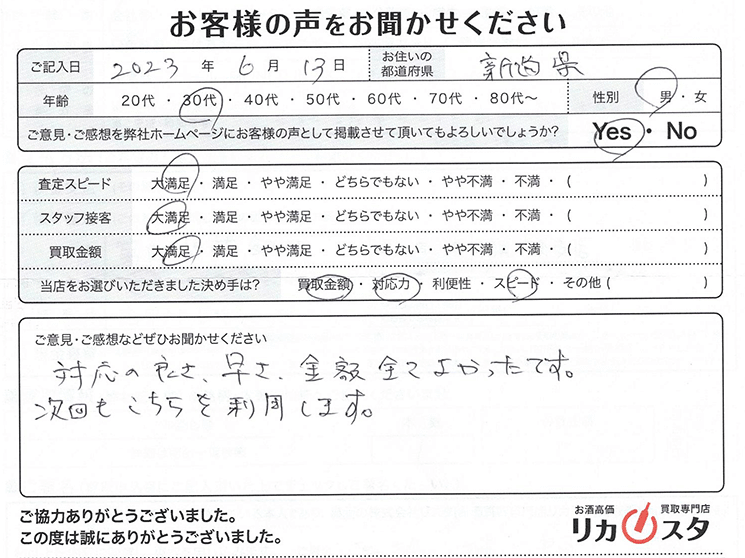 お客様の声をお聞かせください
ご記入日 2023 年 6 月 13 日 お住いの都道府県 新潟県
年齢 20代・30代・40代・50代・60代・70代・80代〜 性別 男・女
ご意見・ご感想を弊社ホームページにお客様の声として掲載させて頂いてもよろしいでしょうか? Yes・No
査定スピード 大満足・満足・やや満足・どちらでもない・やや不満・不満・( )
スタッフ接客 大満足・満足・やや満足・どちらでもない・やや不満・不満・( )
買取金額 大満足・満足・やや満足・どちらでもない・やや不満・不満・( )
当店をお選びいただきました決め手は? 買取金額・対応力・利便性・スピード・その他( )
ご意見・ご感想などぜひお聞かせください
対応の良さ、早さ、金額全てよかったです。
次回もこちらを利用します。
ご協力ありがとうございました。
この度は誠にありがとうございました。
お酒高価 買取専門店
リカスタ